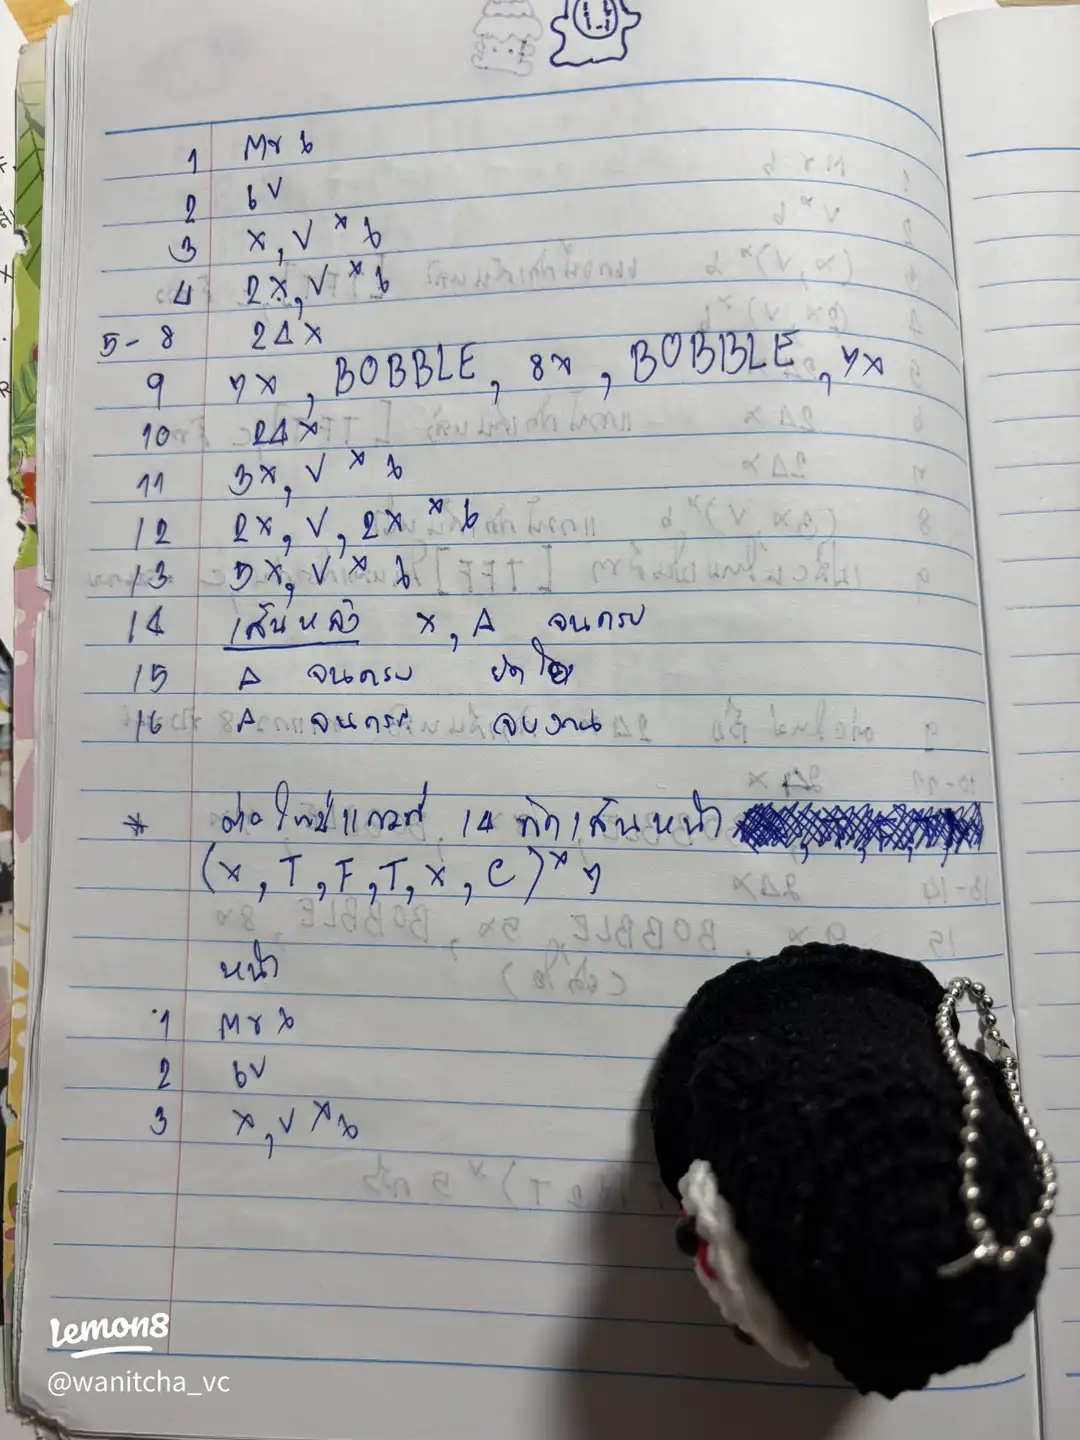 1 Mr 6
2 6V
3 x, V * 6
4 2x, V * 6
5-8 24x
9 7x, BOBBLE, 8x, BOBBLE, 7x
10 24x
11 3x, V * 6
12 2x, V, 2x * 6
13 5x, V * 6
14 เส้นหลัง x, A จนครบ
15 A จนครบ ยัดใย
16 A จนครบ จบงาน
* ต่อใหม่แถวที่ 14 ถักเส้นหน้า
(x, T, F, T, x, C) * 7
หน้า
1 Mr 6
2 6V
3 x, V * 6
Lemon8
@wanitcha_vc